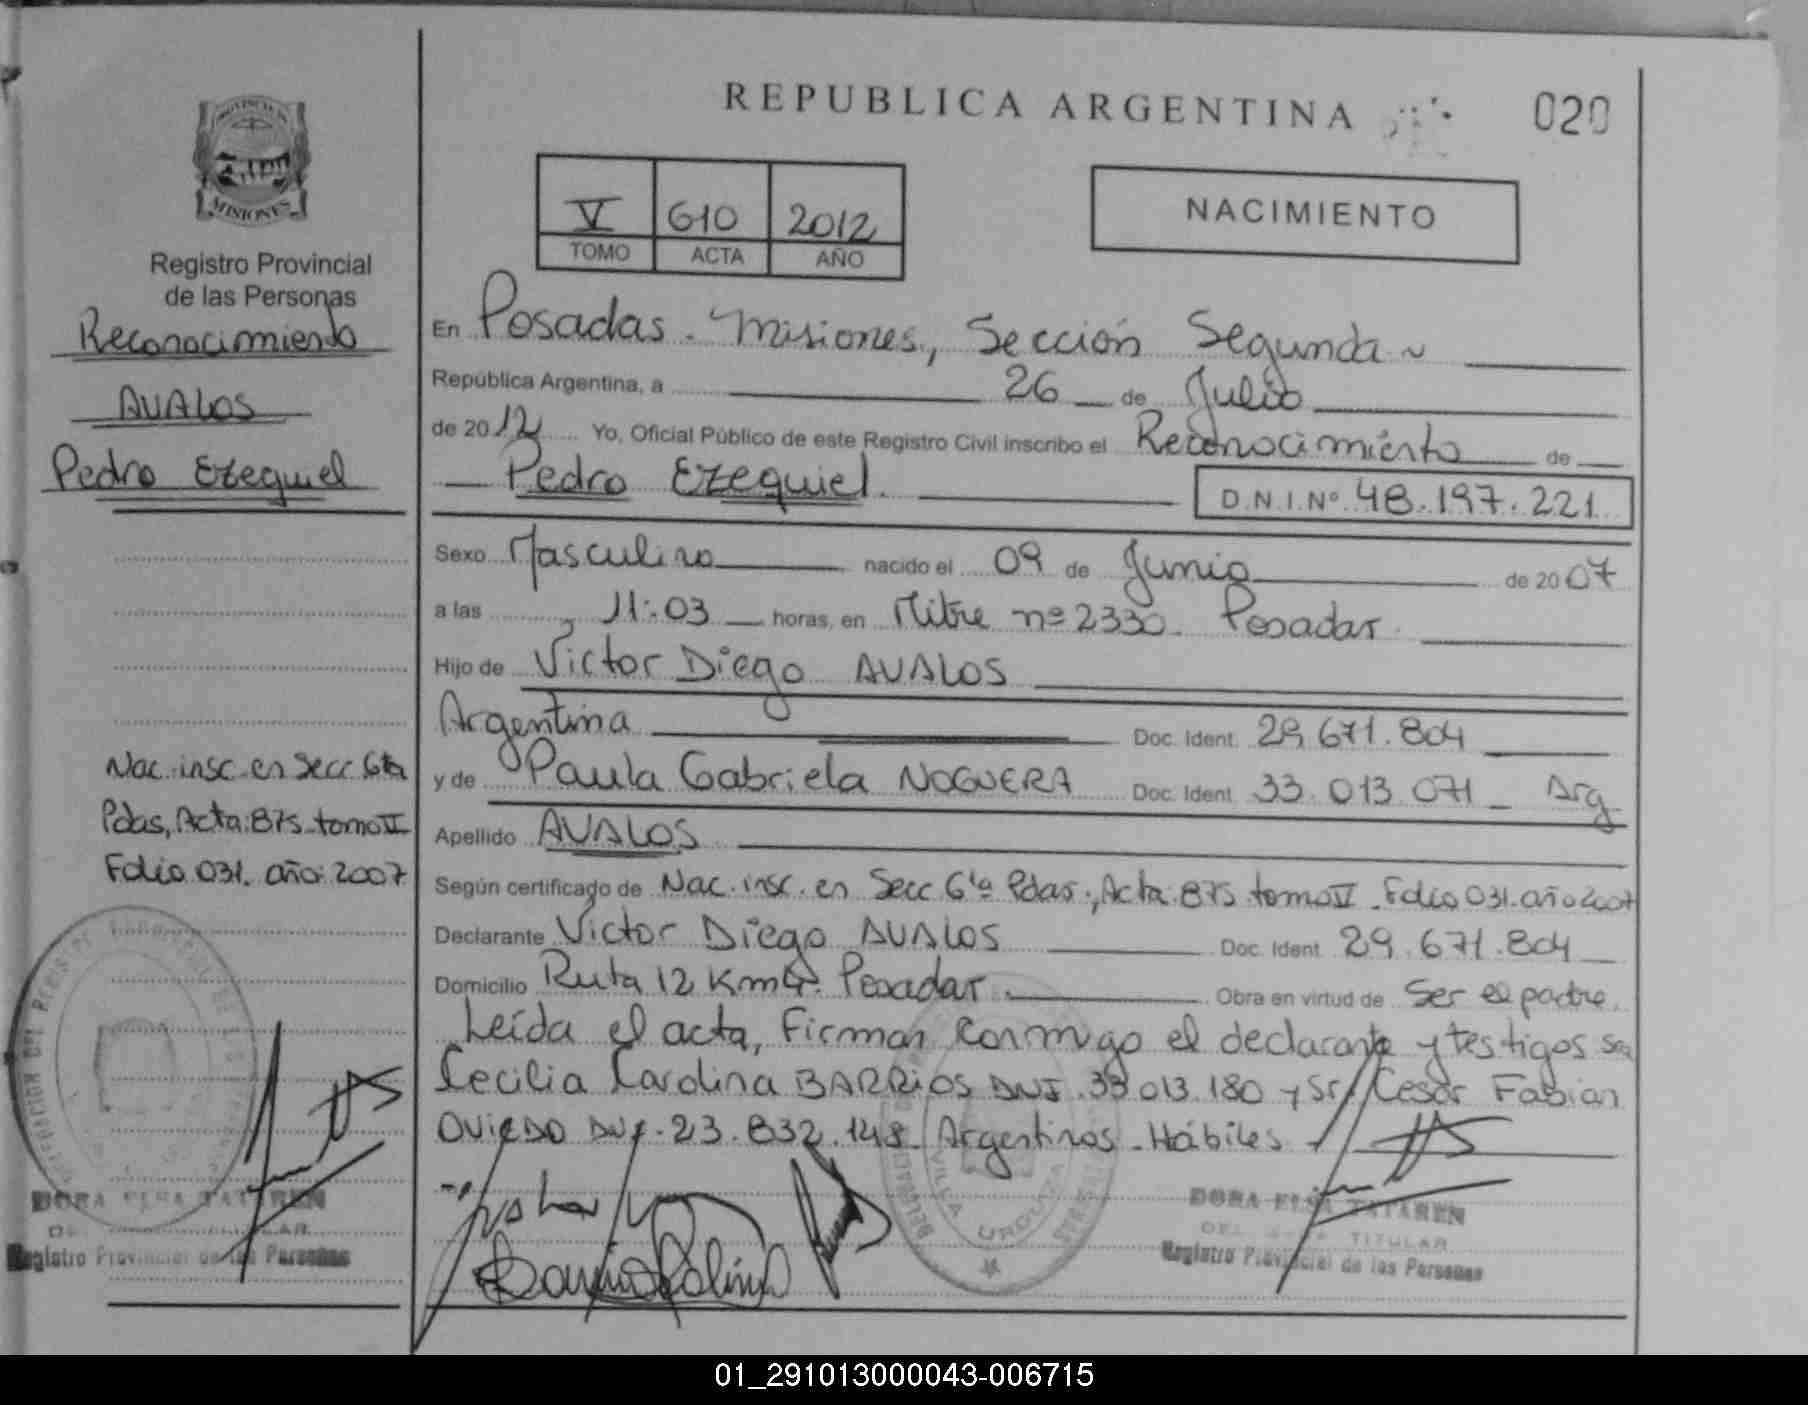 REPUBLICA ARGENTINA
020
PROVINCIA DE
MISIONES
Registro Provincial
de las Personas
Reconocimiento
AVALOS
Pedro Ezequiel
Nac. insc. en Secc 6ta
Pdas, Acta: 875 tomo II
Folio 031. año: 2007
DORA ELSA TATAREN
Registro Provincial de las Personas
V 610 2012
TOMO ACTA AÑO
NACIMIENTO
En Posadas. Misiones, Sección Segunda
República Argentina, a 26 de Julio
de 2012 Yo, Oficial Público de este Registro Civil inscribo el Reconocimiento de
Pedro Ezequiel. D.N.I.Nº 48.197.221
Sexo Masculino nacido el 09 de Junio de 2007
a las 11:03 horas, en Mitre nº 2330. Posadas
Hijo de Victor Diego AVALOS
Argentina Doc. Ident. 29.671.804
y de Paula Gabriela NOGUERA Doc. Ident. 33.013.071 _ Arg
Apellido AVALOS
Según certificado de Nac. insc. en Secc 6ta Pdas., Acta: 875 tomo II. Folio 031. año 2007
Declarante Victor Diego AVALOS Doc. Ident. 29.671.804
Domicilio Ruta 12 Km 4. Posadas. Obra en virtud de Ser el padre.
Leída el acta, Firman conmigo el declarante y testigos Sra
Cecilia Carolina BARRIOS DNI. 33.013.180 y Sr. Cesar Fabian
OVIEDO DNI. 23.832.148. Argentinos. Hábiles
VILLA URQUIZA
DORA ELSA TATAREN
TITULAR
Registro Provincial de las Personas
01_291013000043-006715